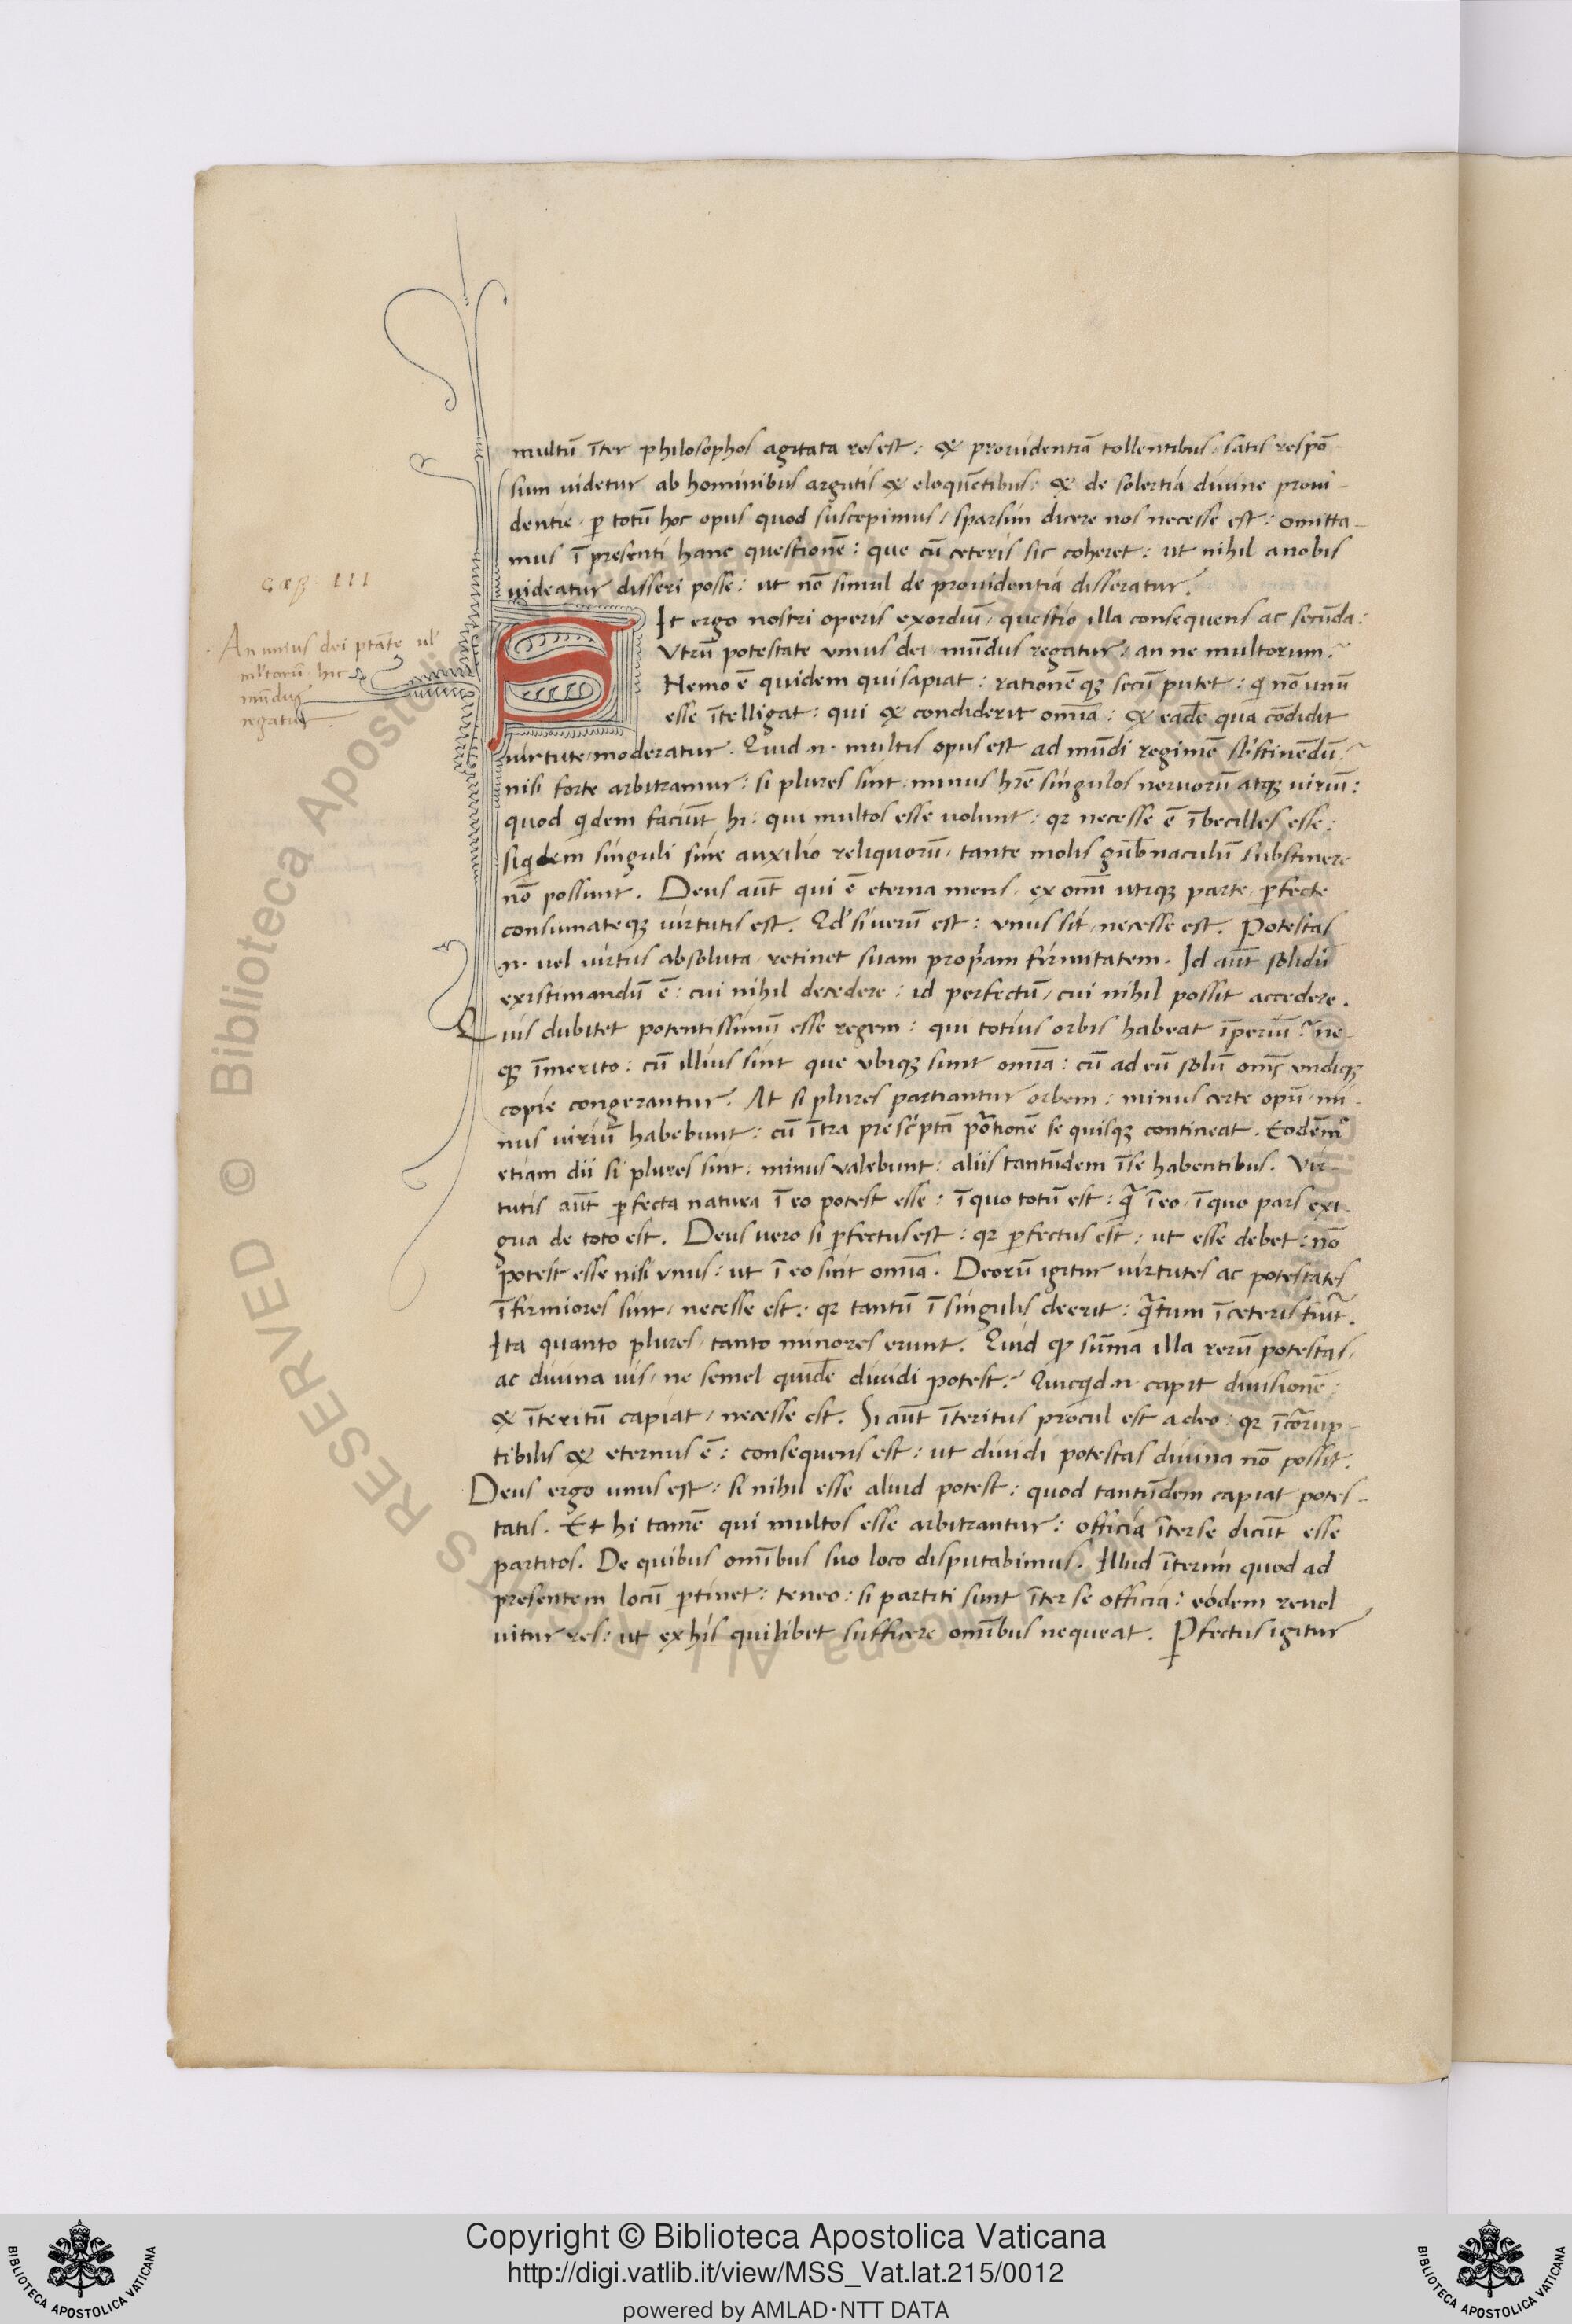 multū īter philosophos agitata res est: & prouidentiā tollentibus / satis respō-
sum uidetur ab hominibus argutis & eloquētibus: & de solertia diuine proui-
dentie / ꝑ totū hoc opus quod suscepimus / sparsim dicere nos necesse est: omitta-
mus ī presenti hanc questionē: que cū ceteris sic coheret: ut nihil a nobis
uideatur disseri posse: ut nō simul de prouidentia disseratur.
cap. III
An unius dei ptāte ul'
mltorū hic
mūdus
regatur.
SIt ergo nostri operis exordiū / questio illa consequens ac secūda:
Vtrū potestate vnius dei mūdus regatur / an ne multorum?
Nemo ē quidem qui sapiat: rationēqꝫ secū putet: qi nō unū
esse ītelligat: qui & condiderit omīa: & eadē qua cōdidit
uirtute moderatur. Quid .n. multis opus est ad mūdi regimē sbstinēdū?
nisi forte arbitramur: si plures sint / minus hrē singulos neruorū atqꝫ uiriū:
quod qdem faciūt hi: qui multos esse uolunt: qr necesse ē ībecilles esse:
siqdem singuli sine auxilio reliquorū / tante molis gubnaculū substinere
nō possunt. Deus aūt qui ē eterna mens / ex omī utiqꝫ parte / ꝑfecte
consumateqꝫ uirtutis est. Qd' si uerū est: vnus sit / necesse est. Potestas
.n. uel uirtus absoluta / retinet suam propiam firmitatem. Id aūt solidū
existimandū ē: cui nihil decedere: id perfectū / cui nihil possit accedere.
Quis dubitet potentissimū esse regem: qui totius orbis habeat īperiū? ne-
qꝫ īmerito: cū illius sint que vbiqꝫ sunt omīa: cū ad eū solū oms vndiqꝫ
copie congerantur. At si plures partiantur orbem: minus certe opū / mi-
nus uiriū habebunt: cū ītra prescptā portionē se quisqꝫ contineat. Eodēmo
etiam dii si plures sint: minus valebunt: aliis tantūdem ī se habentibus. Vir-
tutis aūt ꝑfecta natura ī eo potest esse: ī quo totū est: qā ī eo / ī quo pars exi-
gua de toto est. Deus uero si ꝑfectus est: qr ꝑfectus est: ut esse debet: nō
potest esse nisi vnus: ut ī eo sint omīa. Deorū igitur uirtutes ac potestates
īfirmiores sint / necesse est: qr tantū ī singulis deerit: qātum ī ceteris fiut.
Ita quanto plures / tanto minores erunt. Quid ꝙ sūma illa rerū potestas /
ac diuina uis / ne semel quidē diuidi potest? Quicqd .n. capit diuisionē:
& īteritū capiat / necesse est. Si aūt īteritus procul est a deo: qr īcorup-
tibilis & eternus ē: consequens est: ut diuidi potestas diuina nō possit.
Deus ergo unus est: si nihil esse aliud potest: quod tantūdem capiat potes-
tatis. Et hi tamē qui multos esse arbitrantur: officia īter se dicūt esse
partitos. De quibus omībus suo loco disputabimus. Illud īterim quod ad
presentem locū ꝑtinet: teneo: si partiti sunt īter se officia: eodem reuol
uitur res: ut ex his quilibet sufficere omībus nequeat. Ꝑfectus igitur
Copyright © Biblioteca Apostolica Vaticana
http://digi.vatlib.it/view/MSS_Vat.lat.215/0012
powered by AMLAD·NTT DATA
BIBLIOTECA APOSTOLICA VATICANA
BIBLIOTECA APOSTOLICA VATICANA